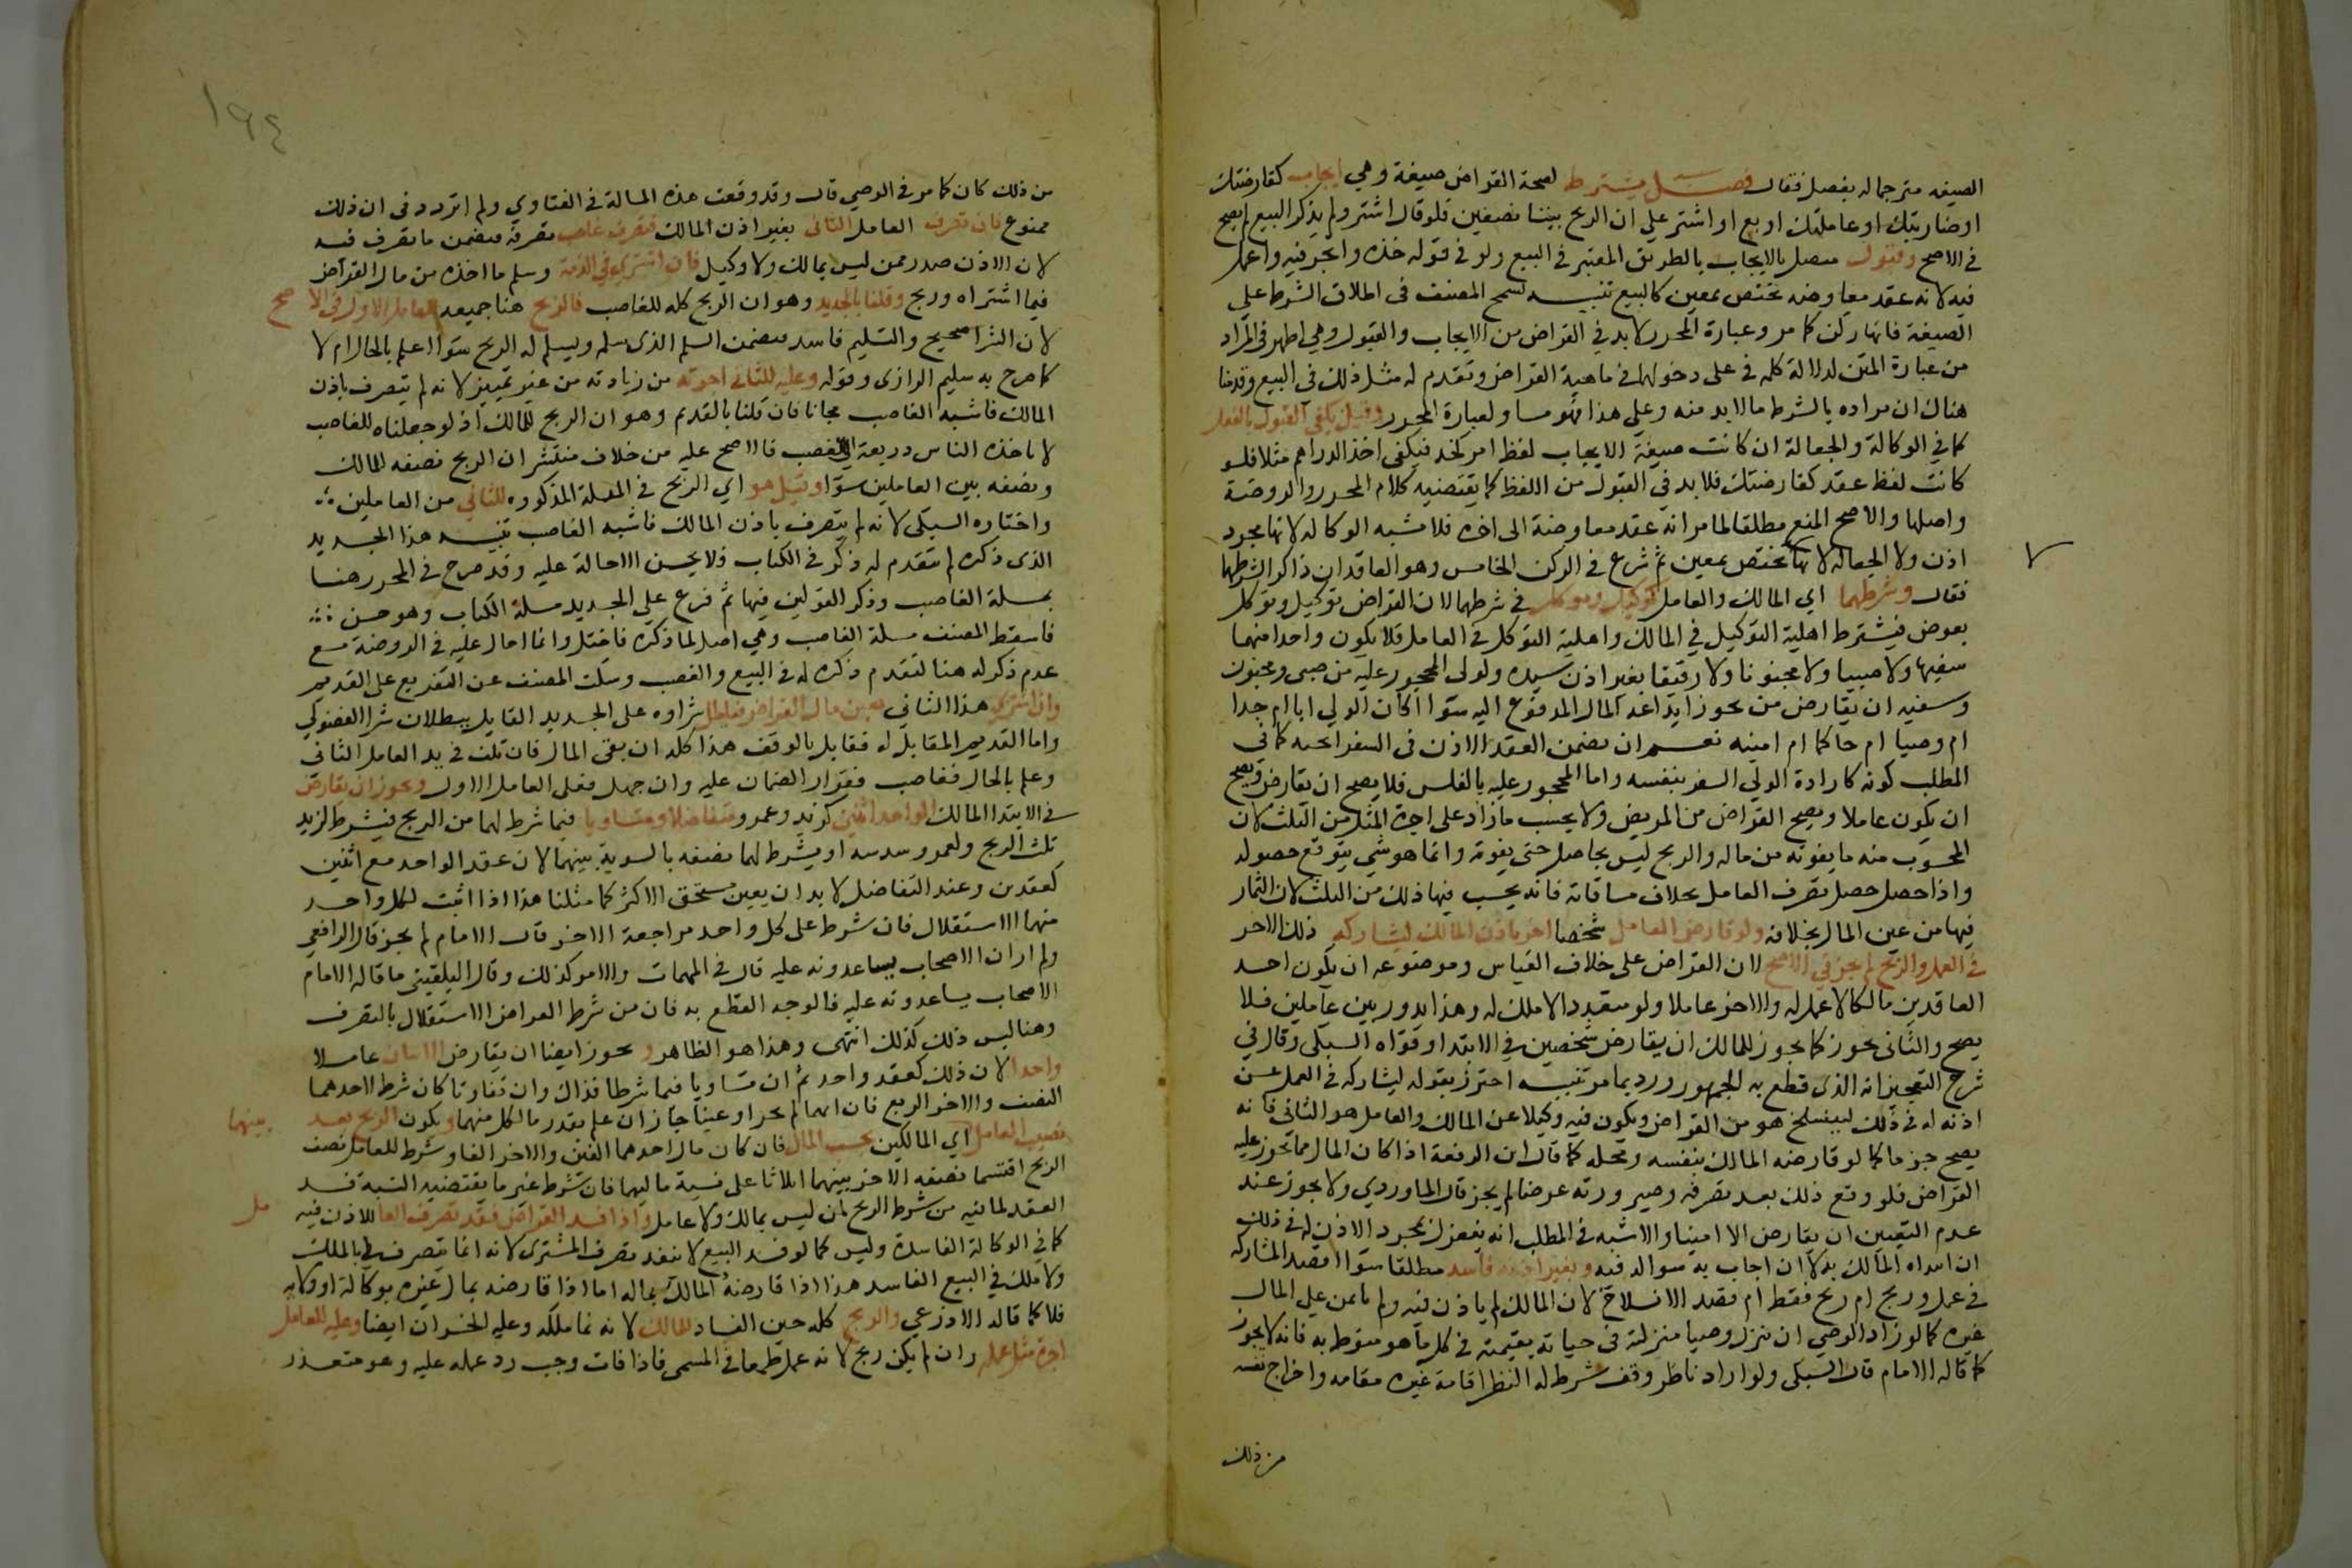 الصيغه مترجما له بفصل فقال فصل يشترط لصحة القراض صيغة وهي ايجاب كقارضتك
اوضاربتك او عاملتك او بع او اشتر علي ان الربح بيننا نصفين فلو قال اشتر ولم يذكر البيع لم يصح
في الاصح وقبول متصل بالايجاب بالطريق المعتبر في البيع ولو في قوله خذه واتجر فيه او اعمل
فيه لانه عقد معاوضه تختص بمعين كالبيع تنبيه تسمح المصنف في اطلاق الشرط علي
الصيغة فانها ركن كما مر وعبارة المحرر لا بد في القراض من الايجاب والقبول وهي اظهر في المراد
من عبارة المتن لدلالة كلمة في على دخولهما في ماهية القراض وتقدم له مثل ذلك في البيع وقدمنا
هناك ان مراده بالشرط ما لا بد منه وعلي هذا فهو مساو لعبارة المحرر وقيل يكفي القبول بالفعل
كما في الوكالة والجعالة ان كانت صيغة الايجاب لفظ امر كخذ فيكفي اخذ الدراهم مثلا فلو
كانت لفظ عقد كقارضتك فلا بد في القبول من اللفظ كما يقتضيه كلام المحرر والروضة
واصلها والاصح المنع مطلقا لما مر انه عقد معاوضة الى اخره فلا مشبه الوكاله لانها مجرد
اذن ولا الجعاله لانها تختص بمعين ثم شرع في الركن الخامس وهو العاقدان ذاكرا لشرطهما
فقال وشرطهما اي المالك والعامل كوكيل وموكل في شرطهما لان القراض توكيل وتوكل
بعوض فيشترط اهلية التوكيل في المالك واهلية التوكل في العامل فلا يكون واحدا منهما
سفيها ولا صبيا ولا مجنونا ولا رقيقا بغير اذن سيده ولولي المحجور عليه من صبي ومجنون
وسفيه ان يقارض من يجوز ايداعه المال المدفوع اليه سوا اكان الولي ابا ام جدا
ام وصيا ام حاكما ام امينه نعم ان تضمن العقد الاذن في السفر اتجه كما في
المطلب كونه كارادة الولي السفر بنفسه واما المحجور عليه بالفلس فلا يصح ان يقارض ويصح
ان يكون عاملا ويصح القراض من المريض ولا يحسب ما زاد على اجرة المثل من الثلث لان
المحسوب منه ما يفوته من ماله والربح ليس بحاصل حتى يفوته وانما هو شي يتوقع حصوله
واذا حصل حصل بتصرف العامل بخلاف مساقاته فانه يحسب فيها ذلك من الثلث لان الثمار
فيها من عين المال بخلافه ولو قارض العامل شخصا اخر باذن المالك ليشاركه ذلك الاخر
في العمل والربح لم يجز في الاصح لان القراض على خلاف القياس وموضوعه ان يكون احد
العاقدين مالكا لا عمل له والاخر عاملا ولو متعددا لا ملك له وهذا يدور بين عاملين فلا
يصح والثاني يجوز كما يجوز للمالك ان يقارض شخصين في الابتدا وقواه السبكي وقال في
شرح التعجيز انه الذى قطع به الجمهور ورد بما مر تنبيه احترز بقوله ليشاركه في العمل عن
اذنه له في ذلك لينسلخ هو من القراض ويكون فيه وكيلا عن المالك والعامل هو الثاني فانه
يصح جزما كما لو قارضه المالك بنفسه ومحله كما قال ابن الرفعة اذا كان المال مما تجوز عليه
القراض فلو وقع ذلك بعد تصرفه وصيرورته عرضا لم يجز قال الماوردي ولا يجوز عند
عدم التعيين ان يقارض الا امينا والاشبه في المطلب انه ينعزل بمجرد الاذن له في ذلك
ان ابتداه المالك به لا ان اجاب به سواله فيه وبغير اذنه فاسد مطلقا سوا اقصد المشاركة
في عمل وربح ام ربح فقط ام قصد الانسلاخ لان المالك لم ياذن فيه ولم ياتمن علي المال
غيره كما لو اراد الوصي ان ينزل وصيا منزلته في حياته يقيمه في كل ما هو منوط به فانه لا يجوز
كما قاله الامام قال السبكي ولو اراد ناظر وقف شرط له النظر اقامة غيره مقامه واخراج نفسه
من ذلك
١٩٤
من ذلك كان كما مر في الوصي قال وقد وقعت هذه المسالة في الفتاوي ولم اتردد في ان ذلك
ممنوع فان تصرف العامل الثاني بغير اذن المالك فتصرف غاصب تصرفه فيضمن ما تصرف فيه
لان الاذن صدر ممن ليس بمالك ولا وكيل فان اشترى في الذمة وسلم ما اخذه من مال القراض
فيما اشتراه وربح وقلنا بالجديد وهو ان الربح كله للغاصب فالربح هنا جميعه للعامل الاول في الاصح
لان الشرا صحيح والتسليم فاسد فيضمن المسلم الذى سلمه ويسلم له الربح سوا اعلم بالحال ام لا
كما صرح به سليم الرازى وقوله وعليه للثاني اجرته من زيادته من غير تمييز لانه لم يتصرف باذن
المالك فاشبه الغاصب مجانا فان قلنا بالقديم وهو ان الربح للمالك اذ لو جعلناه للغاصب
لاتخذه الناس ذريعة الى الغصب فالاصح عليه من خلاف منتشر ان الربح نصفه للمالك
ونصفه بين العاملين سوا وقيل هو اي الربح في المسلة المذكوره للثاني من العاملين
واختاره السبكي لانه لم يتصرف باذن المالك فاشبه الغاصب تنبيه هذا الجديد
الذى ذكره لم يتقدم له ذكر في الكتاب فلا يحسن الاحالة عليه وقد صرح في المحرر هنا
بمسلة الغاصب وذكر القولين فيها ثم فرع علي الجديد مسلة الكتاب وهو حسن
فاسقط المصنف مسلة الغاصب وهي اصل لما ذكره فاختل وانما احال عليه في الروضة مع
عدم ذكر له هنا لتقدم ذكره له في البيع والغصب وسكت المصنف عن التفريع على القديم
وان اشترى هذا الثاني بعين مال القراض فباطل شراوه على الجديد القايل ببطلان شرا الفضولي
واما القديم المقابل له فقايل بالوقف هذا كله ان بقى المال فان تلف في يد العامل الثاني
وعلم بالحال فغاصب فقرار الضمان عليه وان جهل فعلى العامل الاول ويجوز ان يقارض
في الابتدا المالك الواحد اثنين كزيد وعمرو متفاضلا ومتساويا فيما شرط لهما من الربح فيشرط لزيد
ثلث الربح ولعمرو سدسه او يشرط لهما نصفه بالسوية بينهما لان عقد الواحد مع اثنين
كعقدين وعند التفاضل لا بد ان يعين مستحق الاكثر كما مثلنا هذا اذا اثبت لكل واحد
منهما الاستقلال فان شرط على كل واحد مراجعة الاخر قال الامام لم يجز قال الرافعي
ولم ار ان الاصحاب يساعدونه عليه قال في المهمات والامر كذلك وقال البلقيني ما قاله الامام
الاصحاب يساعدونه عليه فالوجه القطع به فان من شرط القراض الاستقلال بالتصرف
وهنا ليس ذلك كذلك انتهى وهذا هو الظاهر و يجوز ايضا ان يقارض الاثنان عاملا
واحدا لان ذلك كعقد واحد ثم ان تساويا فيما شرطا فذاك وان تفاوتا كان شرط احدهما
النصف والاخر الربع فان ابهما لم يجز او عينا جاز ان علم بقدر ما لكل منهما ويكون الربح بعد
نصيب العامل اي المالكين بحسب المال فان كان مال احدهما الفين والاخر الفا وشرط للعامل نصف بينهما
الربح اقتسما نصفه الاخر بينهما اثلاثا على نسبة ماليهما فان شرط غير ما يقتضيه النسبة فسد
العقد لما فيه من شرط الربح لمن ليس بمالك ولا عامل واذا فسد القراض نفذ تصرف العامل للاذن فيه
كما في الوكالة الفاسدة وليس كما لو فسد البيع لا ينفذ تصرف المشترى لانه انما يتصرف فيه بالملك
ولا ملك في البيع الفاسد هذا اذا قارضه المالك بماله اما اذا قارضه بمال غيره بوكالة او ولاية
فلا كما قاله الاذرعي والربح كله حين الفساد للمالك لانه نما ملكه وعليه الخسران ايضا وعليه للعامل
اجرة مثل عمله وان لم يكن ربح لانه عمل طمعا في المسمى فاذا فات وجب رد عمله عليه وهو متعذر